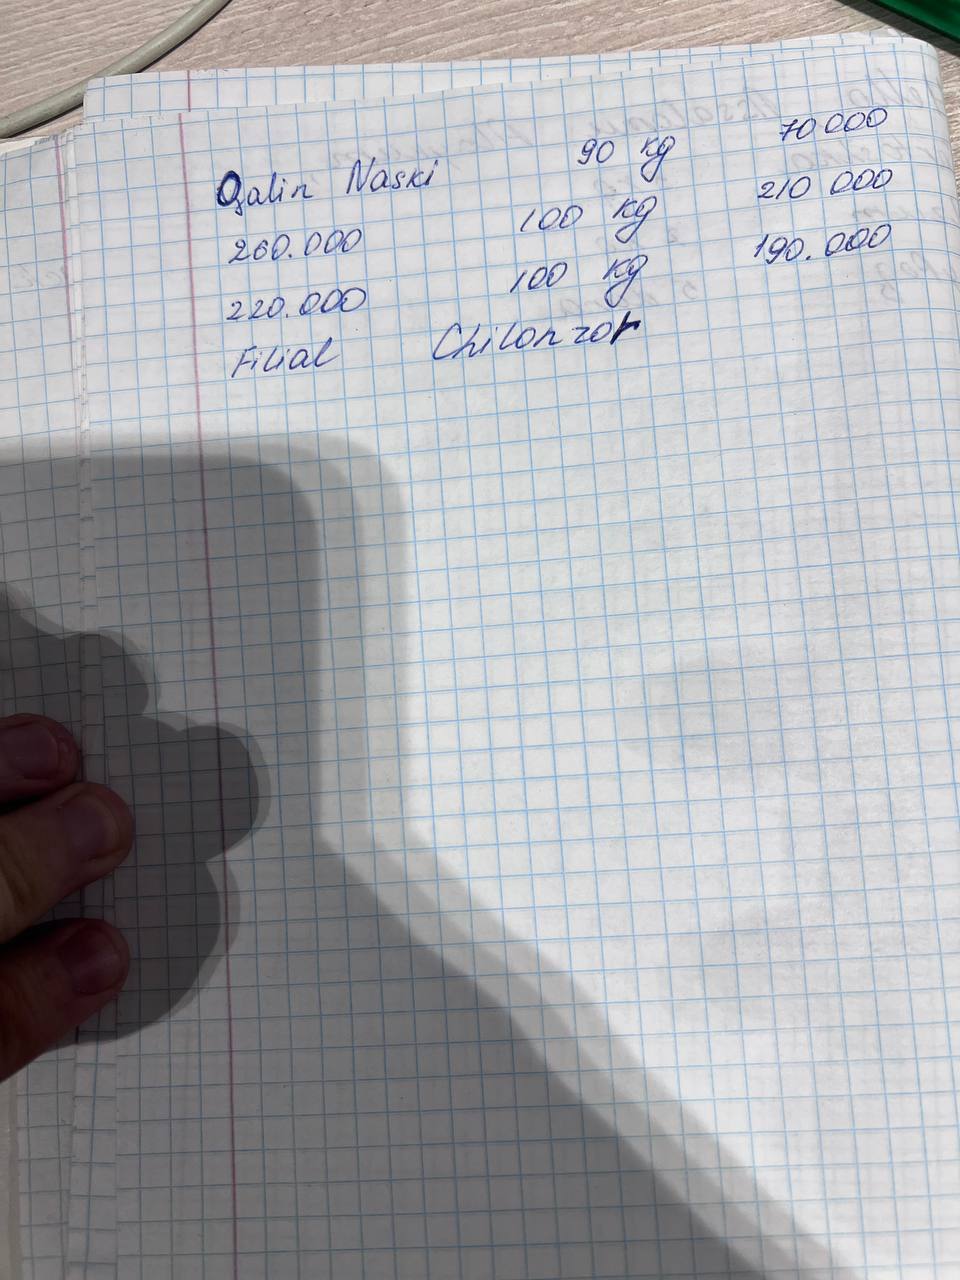 Qalin Naski 90 kg 70000
260.000 100 kg 210 000
220.000 100 kg 190.000
Filial Chilonzor